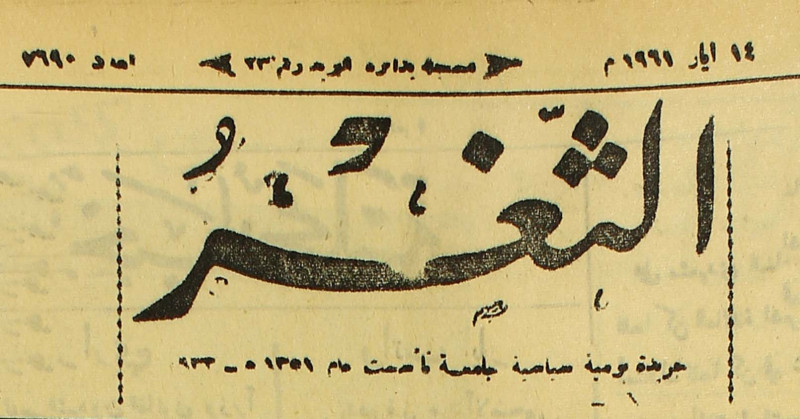 ١٤ ايار ١٩٦١ م مسجلة بدائرة البريد رقم ٢٣ العدد ٧٦٩٠
الثَّغْرُ
جريدة يومية سياسية جامعة تأسست عام ١٣٥١ ه ـ ٩٣٣